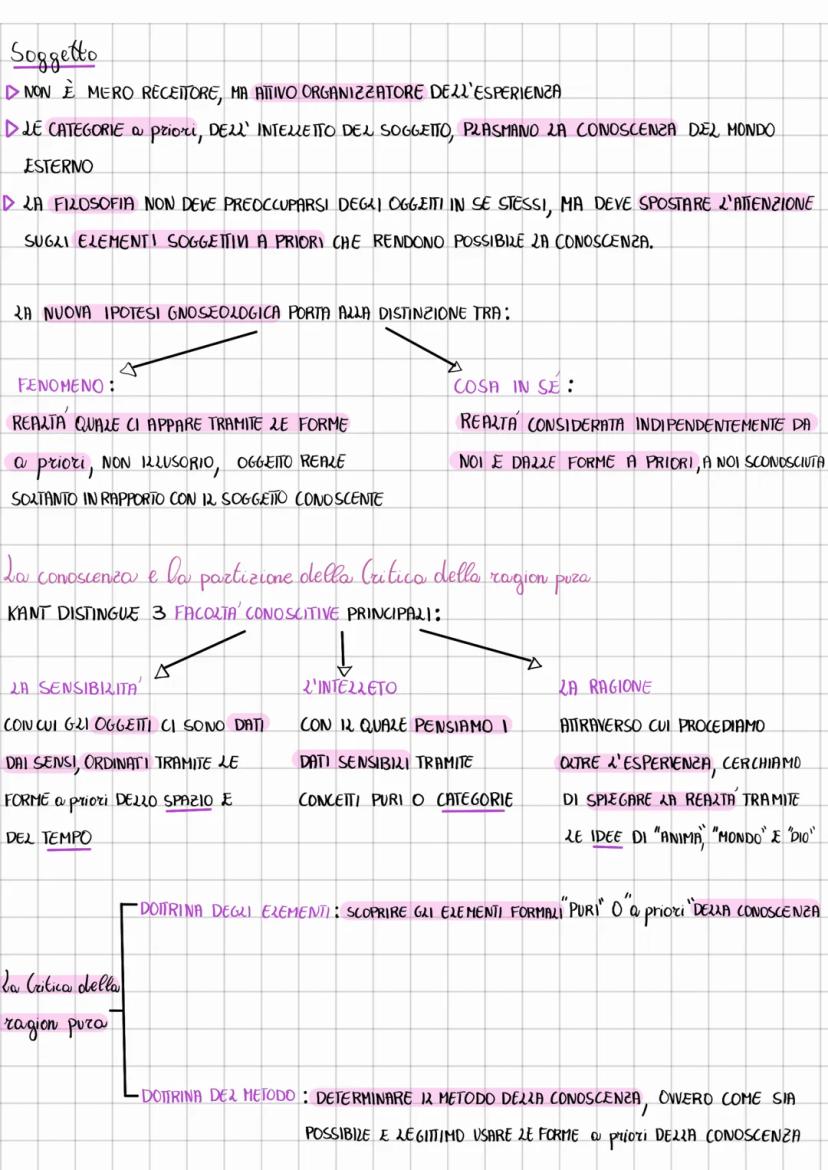 Soggetto
NON È MERO RECETTORE, MA ATTIVO ORGANIZZATORE DELL'ESPERIENZA
LE CATEGORIE a priori, DELL' INTELLETTO DEL SOGGETTO, PLASMANO LA CONOSCENZA DEL MONDO
ESTERNO
LA FILOSOFIA NON DEVE PREOCCUPARSI DEGLI OGGETTI IN SE STESSI, MA DEVE SPOSTARE L'ATTENZIONE
SUGLI ELEMENTI SOGGETTIVI A PRIORI CHE RENDONO POSSIBILE LA CONOSCENZA.
LA NUOVA IPOTESI GNOSEOLOGICA PORTA ALLA DISTINZIONE TRA:
FENOMENO:
REALTA' QUALE CI APPARE TRAMITE LE FORME
a priori, NON ILLUSORIO, OGGETTO REALE
SOLTANTO IN RAPPORTO CON IL SOGGETTO CONOSCENTE
COSA IN SÉ:
REALTA' CONSIDERATA INDIPENDENTEMENTE DA
NOI E DALLE FORME A PRIORI, A NOI SCONOSCIUTA
La conoscenza e la partizione della Critica della ragion pura
KANT DISTINGUE 3 FACOLTA' CONOSCITIVE PRINCIPALI:
LA SENSIBILITA'
CON CUI GLI OGGETTI CI SONO DATI
DAI SENSI, ORDINATI TRAMITE LE
FORME a priori DELLO SPAZIO E
DEL TEMPO
L'INTELLETO
CON IL QUALE PENSIAMO I
DATI SENSIBILI TRAMITE
CONCETTI PURI O CATEGORIE
LA RAGIONE
ATTRAVERSO CUI PROCEDIAMO
OLTRE L'ESPERIENZA, CERCHIAMO
DI SPIEGARE LA REALTA' TRAMITE
LE IDEE DI "ANIMA", "MONDO" E "DIO"
La Critica della
ragion pura
DOTTRINA DEGLI ELEMENTI: SCOPRIRE GLI ELEMENTI FORMALI "PURI" O "a priori" DELLA CONOSCENZA
DOTTRINA DEL METODO: DETERMINARE IL METODO DELLA CONOSCENZA, OVVERO COME SIA
POSSIBILE E LEGITTIMO USARE LE FORME a priori DELLA CONOSCENZA